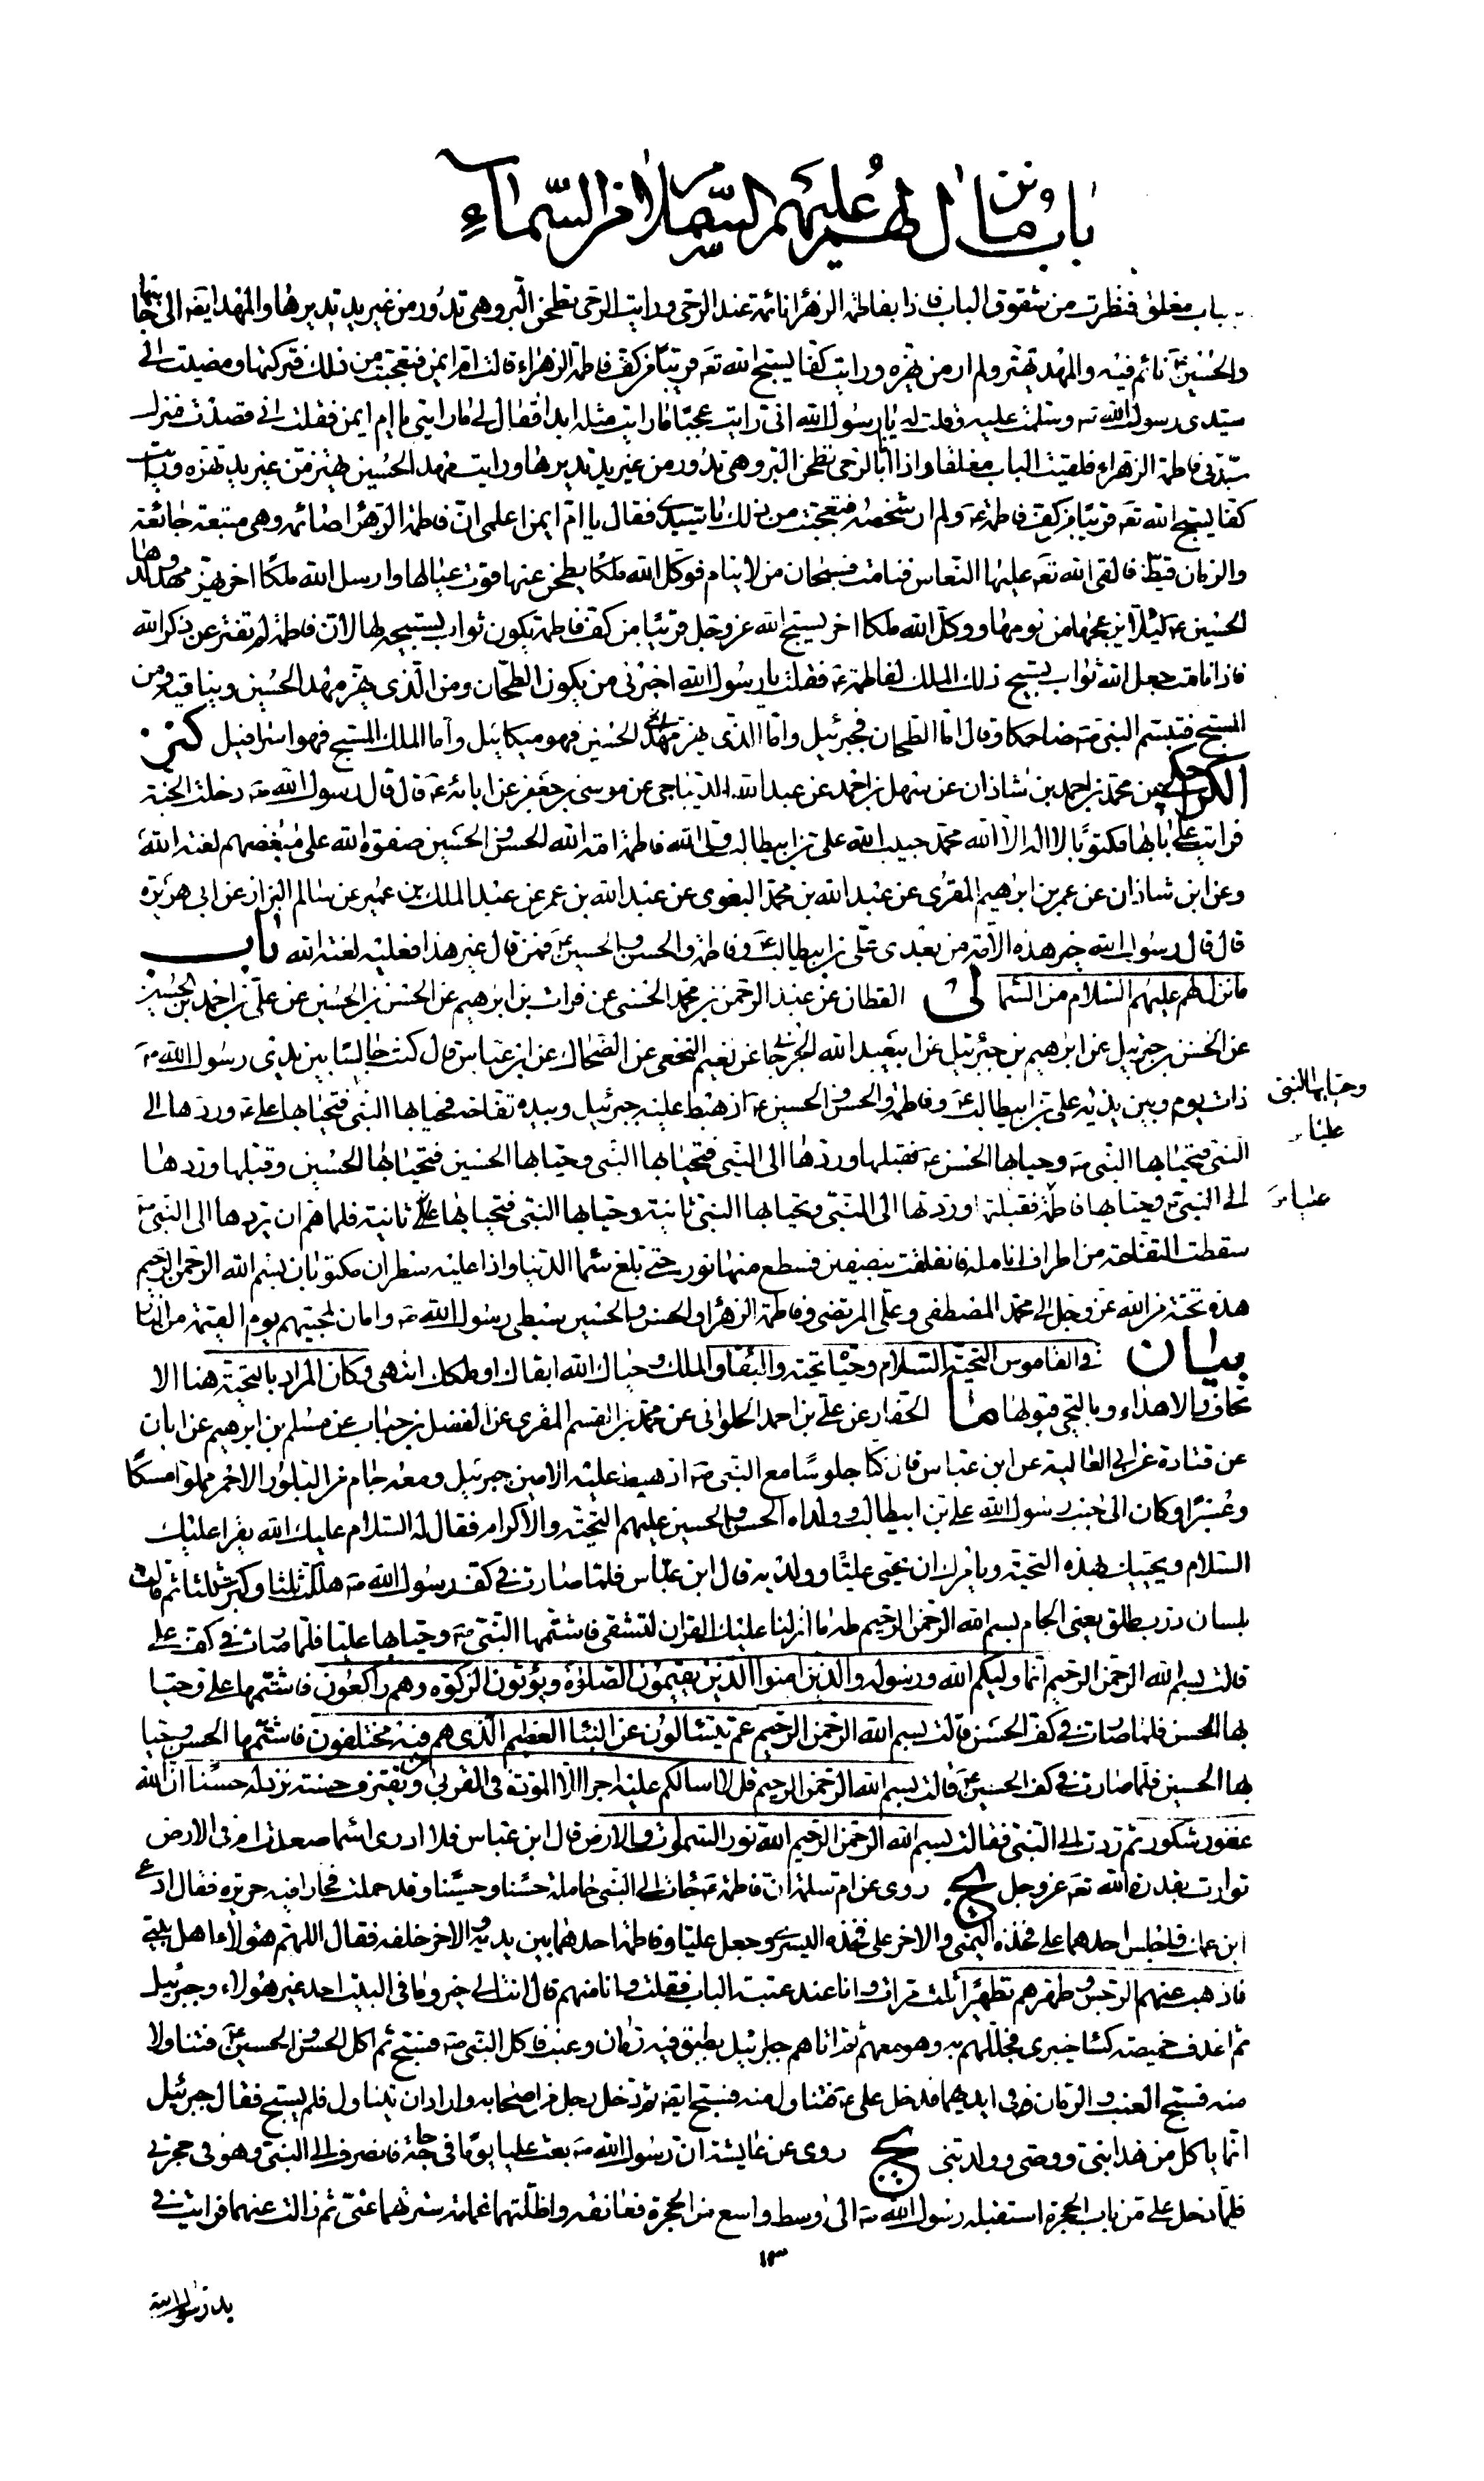 باب ما نزل لهم عليهم السلام من السماء
باب مغلق فنظرت من شقوق الباب فاذا بفاطمة الزهراء نائمة عند الرحى ورايت الرحى تطحن البر وهي تدور من غير يد تديرها والمهد ايضا الى جانبها
والحسين ع نائم فيه والمهد يهتز ولم ار من يهزه ورايت كفا يسبح الله تعه قريبا من كف فاطمة الزهراء قالت ام ايمن فتعجبت من ذلك فتركتها ومضيت الى
سيدى رسول الله ص وسلمت عليه وقلت له يا رسول الله انى رايت عجبا ما رايت مثله ابدا فقال لى ما رايت يا ام ايمن فقلت انى قصدت منزل
سيدتى فاطمة الزهراء فلقيت الباب مغلقا واذا انا بالرحى تطحن البر وهي تدور من غير يد تديرها ورايت مهد الحسين يهتز من غير يد تهزه ورايت
كفا يسبح الله تعه قريبا من كف فاطمة ع ولم ار شخصه فتعجبت من ذلك يا سيدى فقال يا ام ايمن اعلمى ان فاطمة الزهراء صائمة وهي متعبة جائعة
والزمان قيظ فالقى الله تعه عليها النعاس فنامت فسبحان من لا ينام فوكل الله ملكا يطحن عنها قوت عيالها وارسل الله ملكا اخر يهز مهد ولدها
الحسين ع لئلا يزعجها من نومها ووكل الله ملكا اخر يسبح الله عز وجل قريبا من كف فاطمة يكون ثواب تسبيحه لها لان فاطمة لم تفتر عن ذكر الله
فاذا نامت جعل الله ثواب تسبيح ذلك الملك لفاطمة ع فقلت يا رسول الله اخبرنى من يكون الطحان ومن الذى يهز مهد الحسين ويناغيه ومن
المسبح فتبسم النبى ص ضاحكا وقال اما الطحان فجبرئيل واما الذى يهز مهد الحسين فهو ميكائيل واما الملك المسبح فهو اسرافيل كنز
الكراجكى عن محمد بن احمد بن شاذان عن سهل بن احمد عن عبد الله الديباجى عن موسى بن جعفر عن ابائه ع قال قال رسول الله ص دخلت الجنة
فرايت على بابها مكتوبا لا اله الا الله محمد حبيب الله على بن ابيطالب ولى الله فاطمة امة الله الحسن والحسين صفوة الله على مبغضهم لعنة الله
وعن ابن شاذان عن عمر بن ابراهيم المقرى عن عبد الله بن محمد البغوى عن عبد الله بن عمر عن عبد الملك بن عمير عن سالم البزاز عن ابى هريرة
قال قال رسول الله خير هذه الامة من بعدى على بن ابيطالب ع وفاطمة والحسن والحسين ع فمن قال غير هذا فعليه لعنة الله باب
ما نزل لهم عليهم السلام من السماء لى القطان عن عبد الرحمن بن محمد الحسنى عن فرات بن ابراهيم عن الحسن بن الحسين عن على بن احمد بن الحسين
عن الحسن بن جبرئيل عن ابراهيم بن جبرئيل عن ابى عبد الله الجرجانى عن نعيم النخعى عن الضحاك عن ابن عباس قال كنت جالسا بين يدى رسول الله ص
ذات يوم وبين يديه على بن ابيطالب ع وفاطمة والحسن والحسين ع اذ هبط عليه جبرئيل وبيده تفاحة فحيا بها النبى فتحيا بها على ع وردها الى
وحيا بها النبى
عليا ع
النبى فتحيا بها النبى ص وحيا بها الحسن ع فقبلها وردها الى النبى فتحيا بها النبى وحيا بها الحسين فتحيا بها الحسين وقبلها وردها
الى النبى ص وحيا بها فاطمة فقبلتها وردتها الى النبى وتحيا بها النبى ثانية وحيا بها النبى فتحيا بها على ثانية فلما هم ان يردها الى النبى ص
عليا ع
سقطت التفاحة من اطراف انامله فانفلقت بنصفين فسطع منها نور حتى بلغ سماء الدنيا واذا عليه سطران مكتوبان بسم الله الرحمن الرحيم
هذه تحية من الله عز وجل الى محمد المصطفى وعلى المرتضى وفاطمة الزهراء والحسن والحسين سبطى رسول الله ص وامان لمحبيهم يوم القيمة من النار
بيان فى القاموس التحية السلام وحياه تحية والبقاء والملك وحياك الله ابقاك او ملكك انتهى وكان المراد بالتحية هنا الا
تحاف والاهداء وبالتحيى قبولها ما الحفار عن على بن احمد الحلوانى عن محمد بن القسم المقرى عن الفضل بن حباب عن مسلم بن ابرهيم عن ابان
عن قتادة عن ابى العالية عن ابن عباس قال كنا جلوسا مع النبى ص اذ هبط عليه الامين جبرئيل ومعه جام من البلور الاحمر مملو مسكا
وعنبرا وكان الى جنب رسول الله على بن ابيطالب وولداه الحسن والحسين عليهم التحية والاكرام فقال له السلام عليك الله يقرا عليك
السلام ويحييك بهذه التحية ويامرك ان تحيى عليا وولديه قال ابن عباس فلما صارت فى كف رسول الله ص هللت ثلثا وكبرت ثلثا ثم قالت
بلسان ذرب طلق يعنى الجام بسم الله الرحمن الرحيم طه ما انزلنا عليك القران لتشقى فاشتمها النبى ص وحيا بها عليا فلما صارت فى كف على
قالت بسم الله الرحمن الرحيم انما وليكم الله ورسوله والذين امنوا الذين يقيمون الصلوة ويؤتون الزكوة وهم راكعون فاشتمها على وحيا
بها الحسن فلما صارت فى كف الحسن قالت بسم الله الرحمن الرحيم عم يتسائلون عن النبا العظيم الذى هم فيه مختلفون فاشتمها الحسن وحيا
بها الحسين فلما صارت فى كف الحسين ع قالت بسم الله الرحمن الرحيم قل لا اسالكم عليه اجرا الا المودة فى القربى ومن يقترف حسنة نزد له حسنا ان الله
غفور شكور ثم ردت الى النبى فقالت بسم الله الرحمن الرحيم الله نور السموات والارض قال ابن عباس فلا ادرى اسماء صعدت ام فى الارض
توارت بقدرة الله تعه عز وجل يج روى عن ام سلمة ان فاطمة ع جاءت الى النبى حاملة حسنا وحسينا وقد حملت فخارا فيه حريرة فقال ادعى
ابن عمك فاجلس احدهما على فخذه اليمنى والاخر على فخذه اليسرى وجعل عليا وفاطمة احدهما بين يديه والاخر خلفه فقال اللهم هؤلاء اهل بيتى
فاذهب عنهم الرجس وطهرهم تطهيرا ثلث مرات وانا عند عتبة الباب فقلت وانا منهم قال انت الى خير وما فى البيت احد غير هؤلاء وجبرئيل
ثم اغدف خميصة كساء خيبرى فجللهم به وهو معهم ثم اتاهم جبرئيل بطبق فيه رمان وعنب فاكل النبى ص فسبح ثم اكل الحسن والحسين ع فتناولا
منه فسبح العنب والرمان فى ايديهما فدخل على ع فتناول منه فسبح ايضا ثم دخل رجل من اصحابه واراد ان يتناول فلم يسبح فقال جبرئيل
انما ياكل من هذا نبى ووصى وولد نبى يج روى عن عايشة ان رسول الله ص بعث عليا يوما فى حاجة فانصرف الى النبى وهو فى حجرتى
فلما دخل على من باب الحجرة استقبله رسول الله ص الى وسط واسع من الحجرة فعانقه واظلتهما غمامة سترتهما عنى ثم زالت عنهما فرايت فى
١٣
يد رسول الله